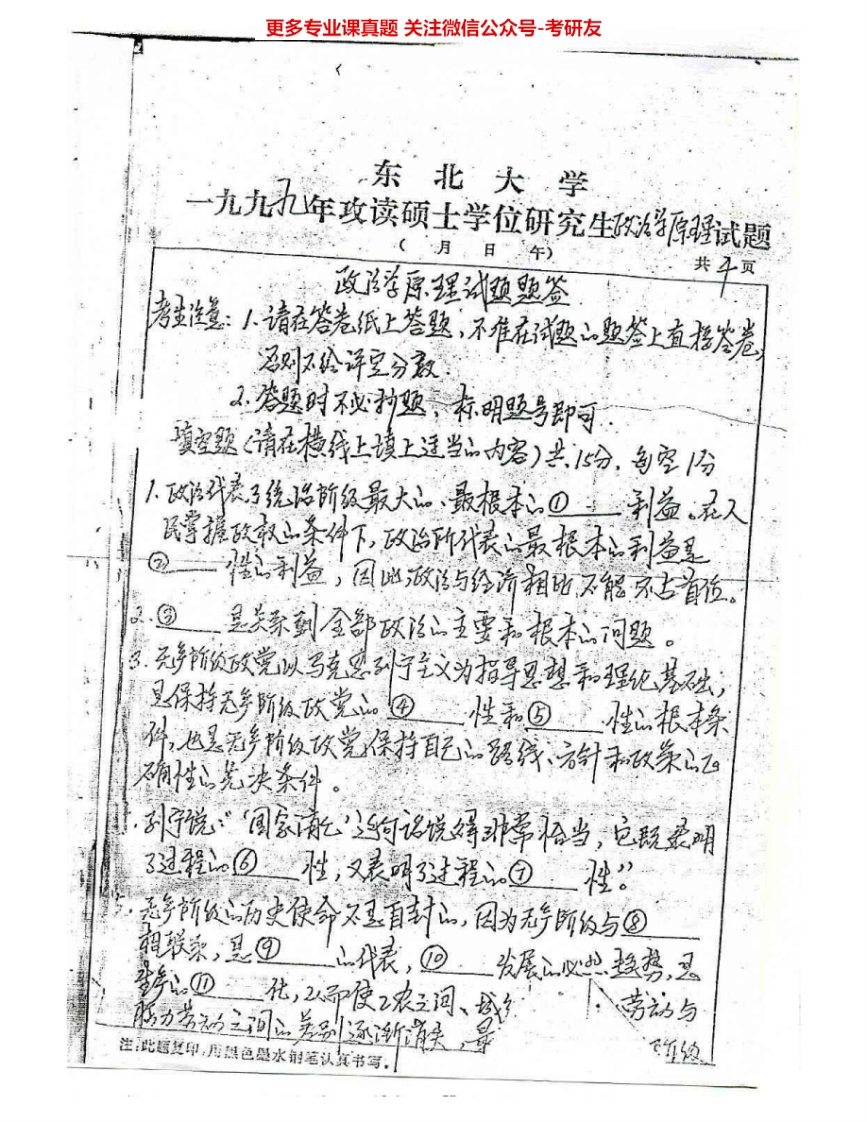 更多专业课真题 关注微信公众号-考研友
东 北 大 学
一九九九年攻读硕士学位研究生政治学原理试题
( 月 日 午)
共4页
政治学原理试题题签
考生注意：1.请在答卷纸上答题，不准在试题的题签上直接答卷，
否则不给评定分数.
2.答题时不必抄题，标明题号即可.
填空题(请在横线上填上适当的内容)共15分，每空1分
1.政治代表了统治阶级最大的、最根本的①____利益。在人
民掌握政权的条件下，政治所代表的最根本的利益是
②____性的利益，因此政治与经济相比不能不占首位。
2.③____是关系到全部政治的主要和根本的问题。
3.无产阶级政党以马克思列宁主义为指导思想和理论基础，
是保持无产阶级政党的④____性和⑤____性的根本条
件，也是无产阶级政党保持自己的路线、方针和政策的正
确性的先决条件。
列宁说："'国家消亡'这句话说得非常恰当，它既表明
了过程的⑥____性，又表明了过程的⑦____性。"
无产阶级的历史使命不是自封的，因为无产阶级与⑧____
相联系，是⑨____的代表，⑩____发展的必然趋势，是
生产的⑪____化，从而使工农之间、城乡 劳动与
脑力劳动之间的差别逐渐消失，
阶级
注：此题复印，用黑色墨水钢笔认真书写。